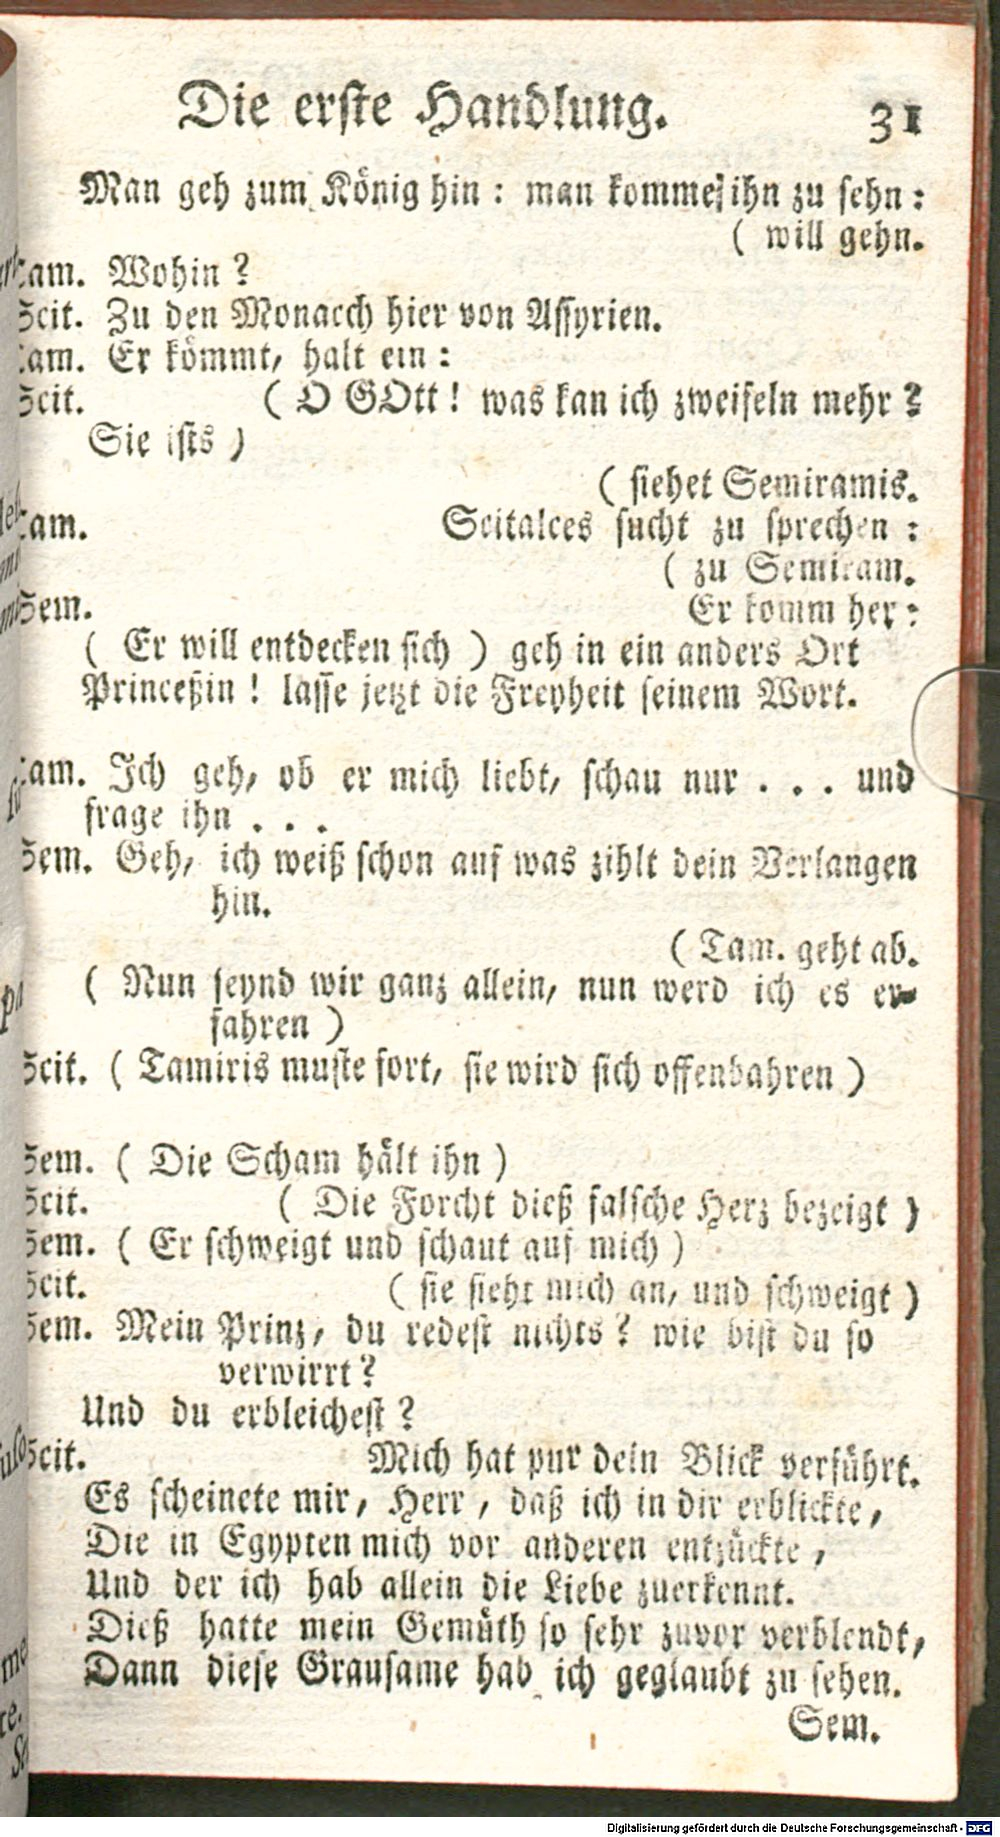 Die erste Handlung. 31
Man geh zum König hin : man komme ihn zu sehn :
( will gehn.
Tam. Wohin ?
Scit. Zu den Monacch hier von Assyrien.
Tam. Er kömmt, halt ein :
Scit. ( O GOtt ! was kan ich zweifeln mehr ?
Sie ists )
( siehet Semiramis.
Tam. Scitalces sucht zu sprechen :
( zu Semiram.
Sem. Er komm her :
( Er will entdecken sich ) geh in ein anders Ort
Princeßin ! lasse jetzt die Freyheit seinem Wort.
Tam. Ich geh, ob er mich liebt, schau nur . . . und
frage ihn . . .
Sem. Geh, ich weiß schon auf was zihlt dein Verlangen
hin.
( Tam. geht ab.
( Nun seynd wir ganz allein, nun werd ich es er-
fahren )
Scit. ( Tamiris muste fort, sie wird sich offenbahren )
Sem. ( Die Scham hält ihn )
Scit. ( Die Forcht dieß falsche Herz bezeigt )
Sem. ( Er schweigt und schaut auf mich )
Scit. ( sie sieht mich an, und schweigt )
Sem. Mein Prinz, du redest nichts ? wie bist du so
verwirrt ?
Und du erbleichest ?
Scit. Mich hat pur dein Blick verführt.
Es scheinete mir, Herr, daß ich in dir erblickte,
Die in Egypten mich vor anderen entzückte,
Und der ich hab allein die Liebe zuerkennt.
Dieß hatte mein Gemüth so sehr zuvor verblendt,
Dann diese Grausame hab ich geglaubt zu sehen.
Sem.
Digitalisierung gefördert durch die Deutsche Forschungsgemeinschaft - DFG